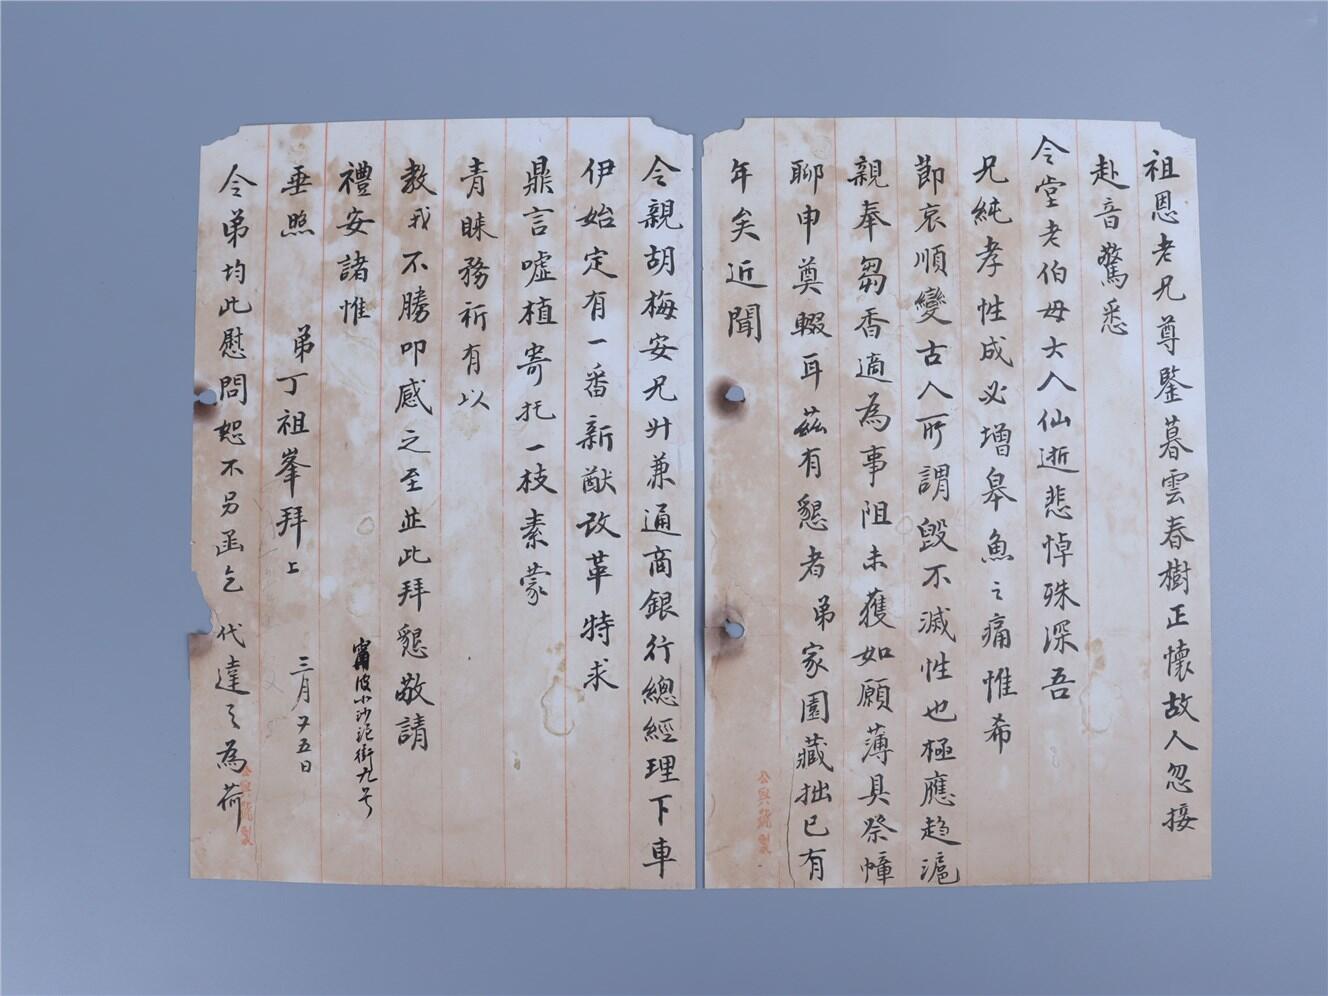 祖恩老兄尊鑒暮雲春樹正懷故人忽接
赴音驚悉
令堂老伯母大人仙逝悲悼殊深吾
兄純孝性成必增皋魚之痛惟希
節哀順變古人所謂毀不滅性也極應趋滬
親奉芻香適為事阻未獲如願薄具祭幛
聊申奠輟耳茲有懇者弟家園藏拙已有
年矣近聞
令親胡梅安兄升兼通商銀行總經理下車
伊始定有一番新猷改革特求
鼎言噓植寄托一枝素蒙
青睞務祈有以
教我不勝叩感之至耑此拜懇敬請
禮安諸惟
垂照
弟丁祖峯拜上
三月廿五日
甯波小沙泥街九号
令弟均此慰問恕不另函乞代達之為荷
公興號製
公興號製